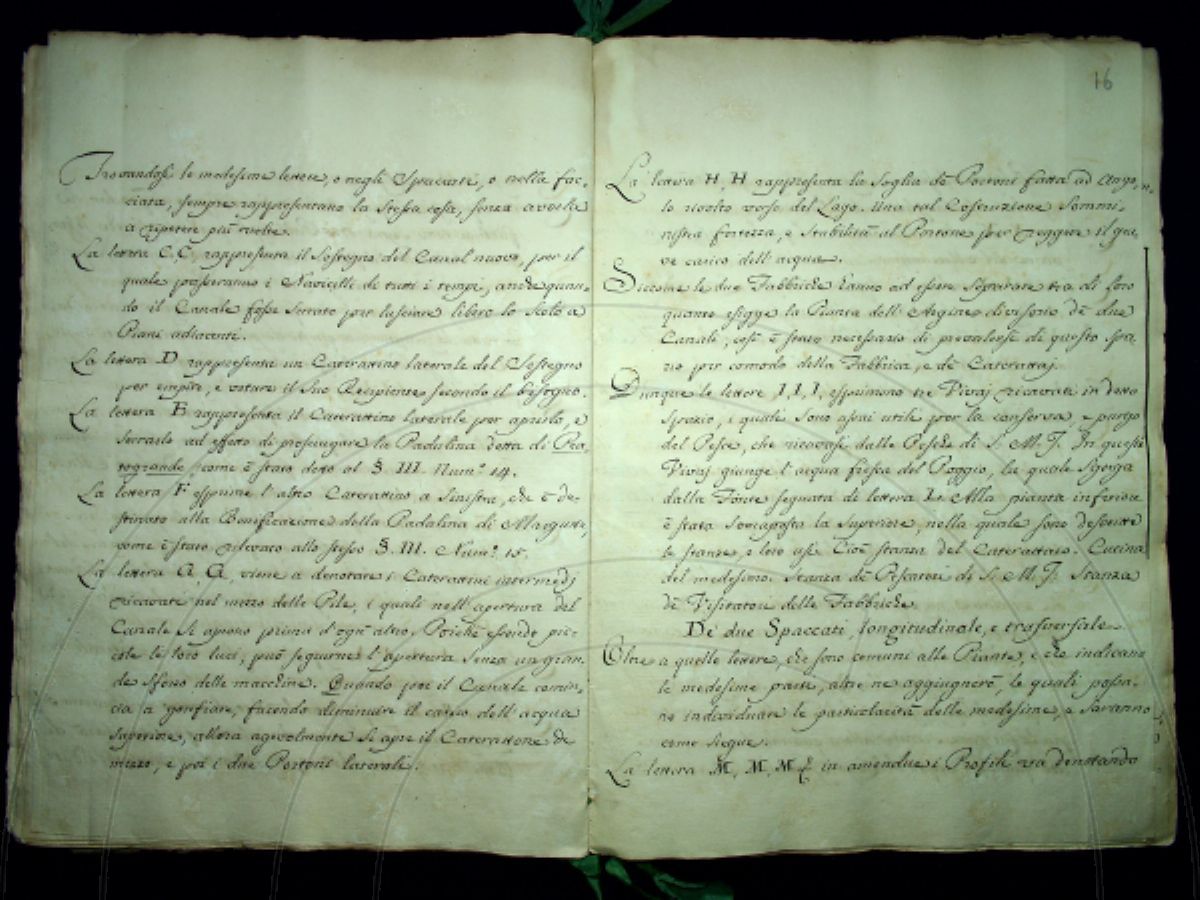 Trovandosi le medesime lettere, o negli Spaccati, o nella fac-
ciata, sempre rappresentano la stessa cosa, senza averle
a ripetere più volte.
La lettera C, C, rappresenta il Sostegno del Canal nuovo, per il
quale passeranno i Navicelli di tutti i tempi, anche quan-
do il Canale fosse serrato per lasciare libero lo scolo a
Piani adiacenti.
La lettera D rappresenta un Caterattino laterale del Sostegno
per empire, e votare il suo Recipiente secondo il bisogno.
La lettera E rappresenta il Caterattino laterale per aprirlo, e
serrarlo ad effetto di prosciugare la Padulina detta di Pra-
togrande, come è stato detto al §. III. Num.° 14.
La lettera F esprime l'altro Caterattino a sinistra, che è de-
stinato alla Bonificazione della Padulina di
come è stato rilevato allo stesso §. III. Num.° 15.
La lettera G, G, viene a denotare i Caterattini intermedj
ricavati nel mezzo delle Pile, i quali nell'apertura del
Canale si aprono prima d'ogn'altro, Poichè essendo pic-
cole le loro luci, può seguirne l'apertura senza un gran-
de sforzo delle macchine. Quando poi il Canale comin-
cia a gonfiare, facendo diminuire il carico dell'acqua
superiore, allora agevolmente si apre il Caterattone di
mezzo, e poi i due Portoni laterali.
16
La lettera H, H rappresenta la Soglia de Portoni fatta ad ango-
lo rivolto verso del Lago. Una tal Costruzione sommi-
nistra fortezza, e stabilità al Portone per reggere il gra-
ve carico dell'acque.
Siccome le due Fabbriche hanno ad essere separate tra di loro
quanto esigge la Pianta dell'Argine divisorio de due
Canali, così è stato necessario di prevalersi di questo spa-
zio per comodo della Fabbrica, e de Caterattaj.
Dunque le lettere I, I, I, esprimono tre Vivaj ricavati in detto
spazio, i quali sono assai utili per la conserva, e purgo
del Pesce, che ricavasi dalle Pesche di S. M. I. In questi
Vivaj giunge l'acqua fresca del Poggio, la quale sgorga
dalla Fonte segnata di lettera L. Alla pianta inferiore
è stata sovrapposta la superiore, nella quale sono descritte
le stanze, e loro usi. Cioè stanza del Caterattaio. Cucina
del medesimo. Stanza de Pescatori di S. M. I. Stanza
de Visitatori delle Fabbriche.
De' due Spaccati longitudinale, e trasversale
Oltre a quelle lettere, che sono comuni alle Piante, e che indicano
le medesime parti, altre ne aggiugnerò, le quali possa-
no individuare le particolarità delle medesime, e saranno
come siegue.
La lettera M, M, M, in amendue i Profili va denotando